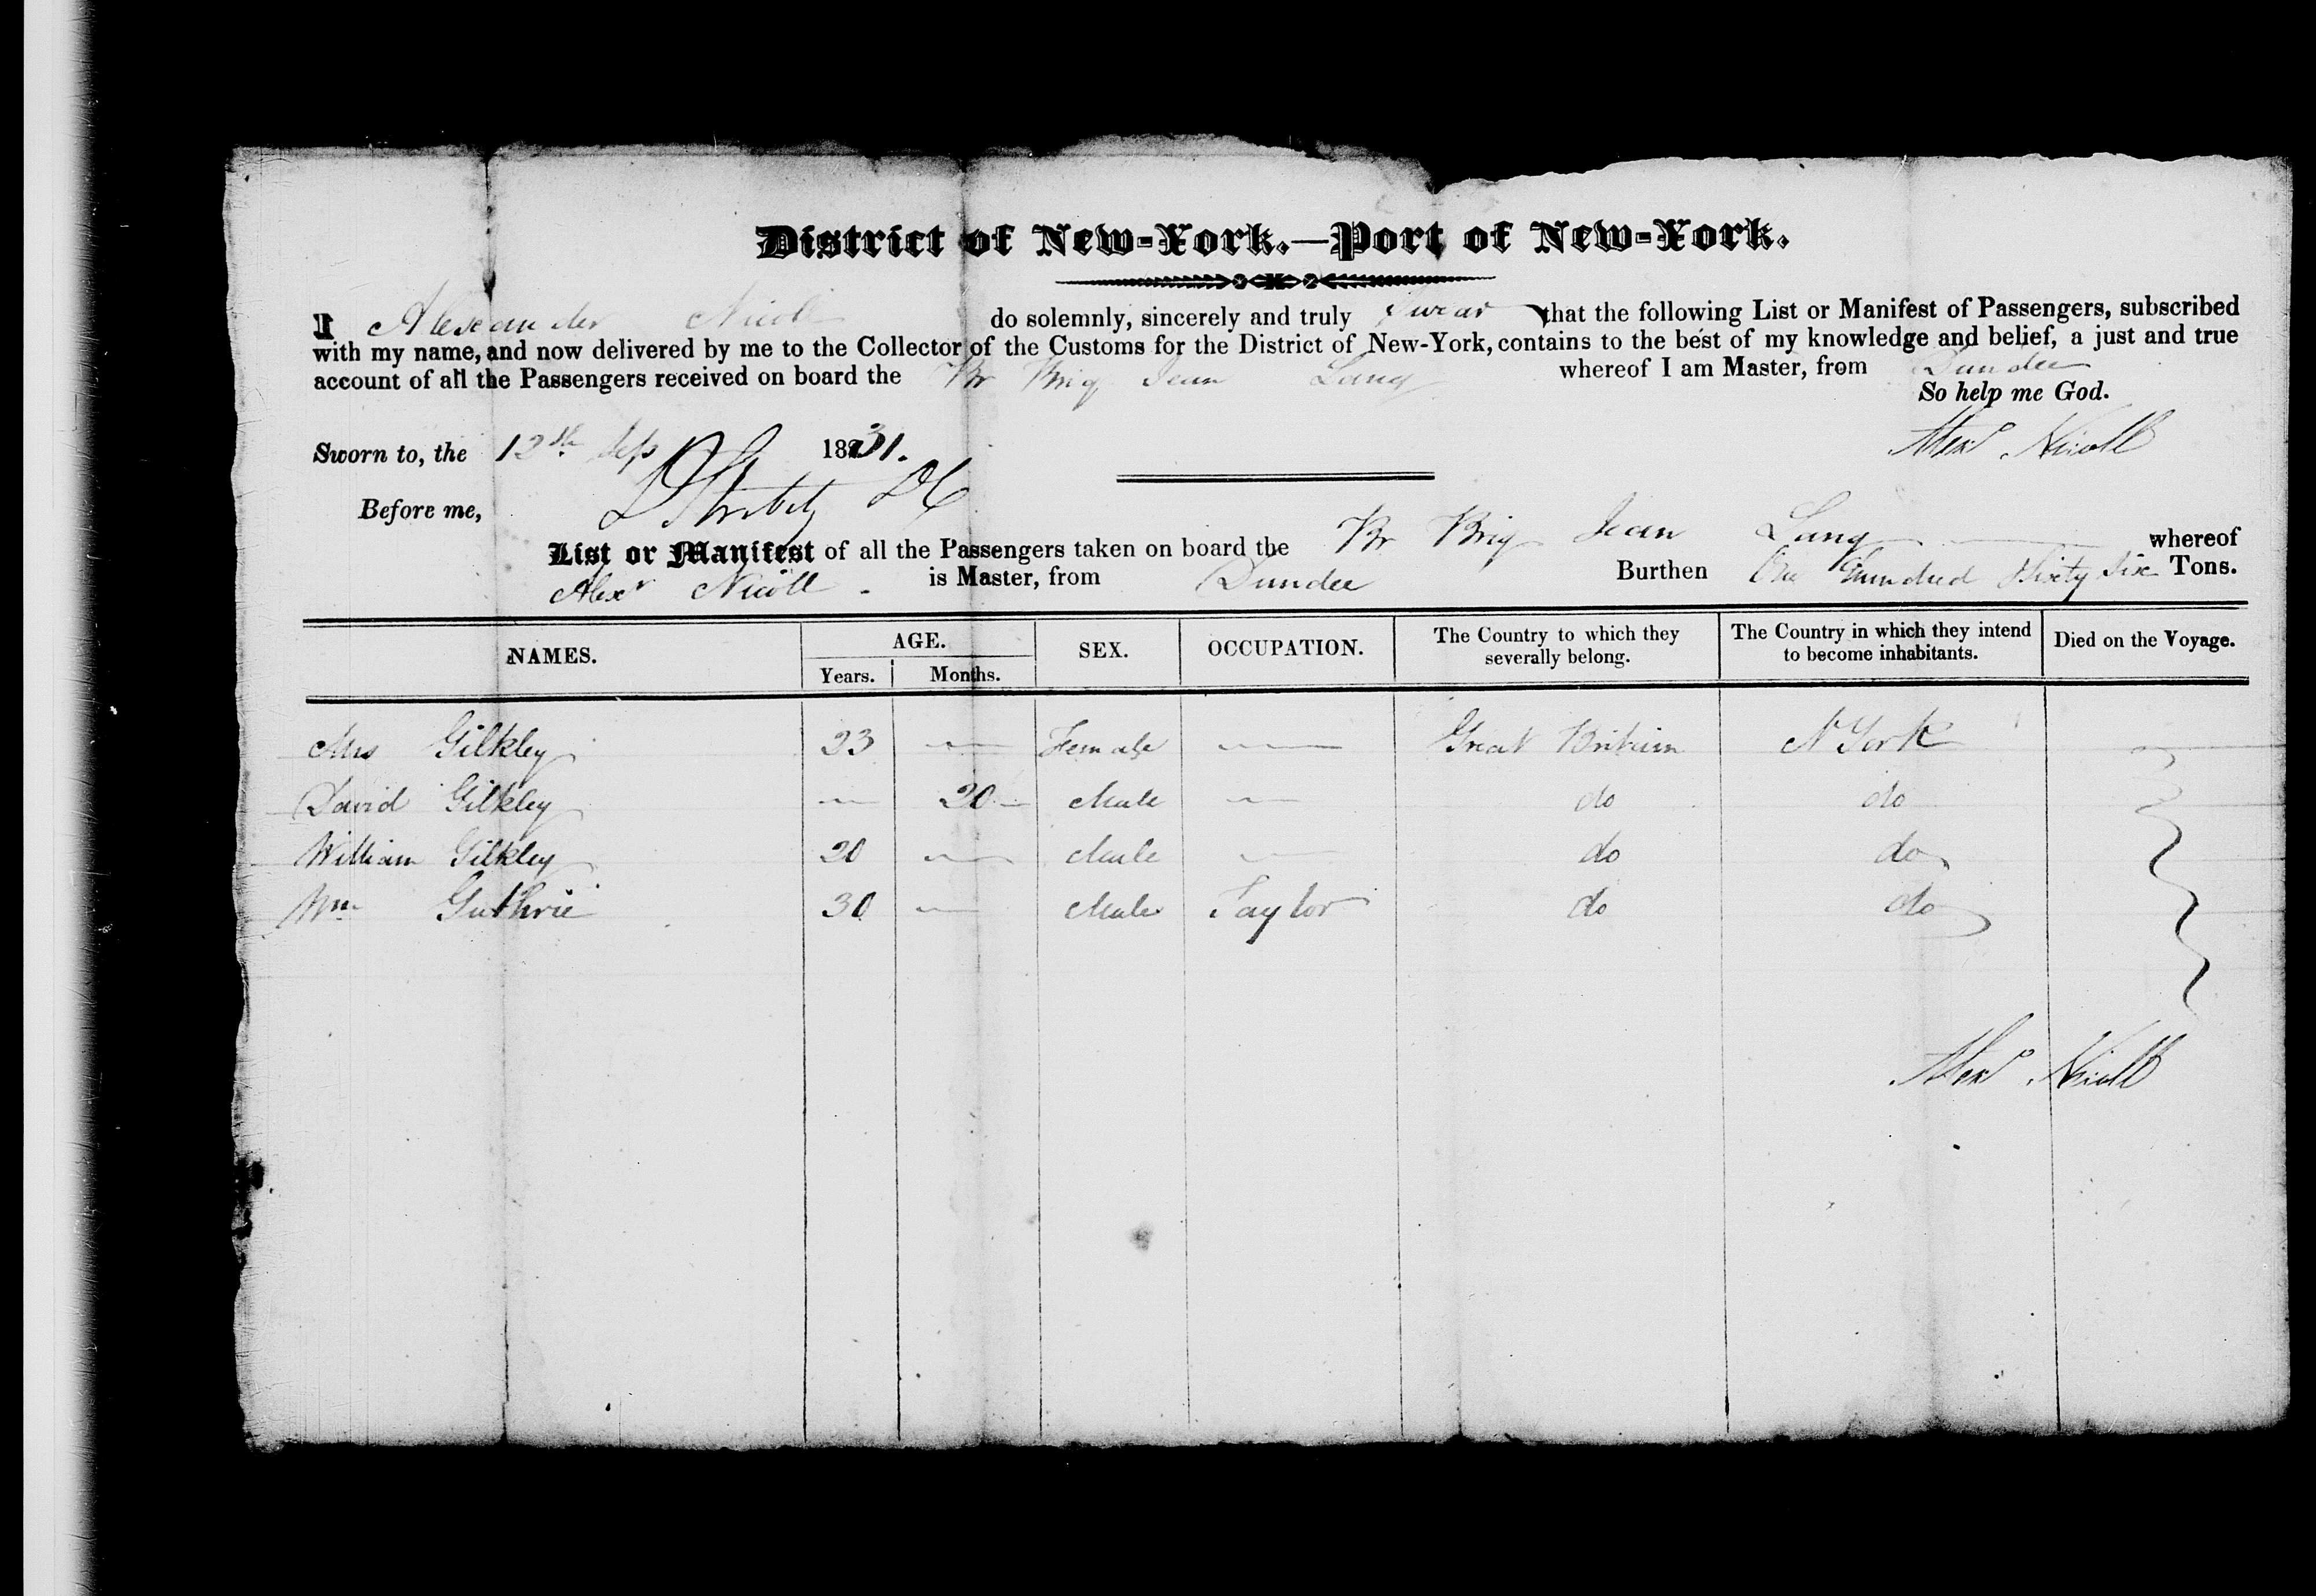 District of New-York.—Port of New-York.
I Alexander Nicoll do solemnly, sincerely and truly Swear that the following List or Manifest of Passengers, subscribed
with my name, and now delivered by me to the Collector of the Customs for the District of New-York, contains to the best of my knowledge and belief, a just and true
account of all the Passengers received on board the Br Brig Jean Lang whereof I am Master, from Dundee
So help me God.
Sworn to, the 12th Sep 1831. Alexr Nicoll
Before me, DC
List or Manifest of all the Passengers taken on board the Br Brig Jean Lang whereof
Alexr Nicoll is Master, from Dundee Burthen One Hundred Sixty Six Tons.
NAMES. AGE. Years. Months. SEX. OCCUPATION. The Country to which they severally belong. The Country in which they intend to become inhabitants. Died on the Voyage.
Mrs Gilkley 23 — Female — Great Britain N York
David Gilkley — 20 Male — do do
William Gilkley 20 — Male — do do
Wm Guthrie 30 — Male Taylor do do
Alexr Nicoll